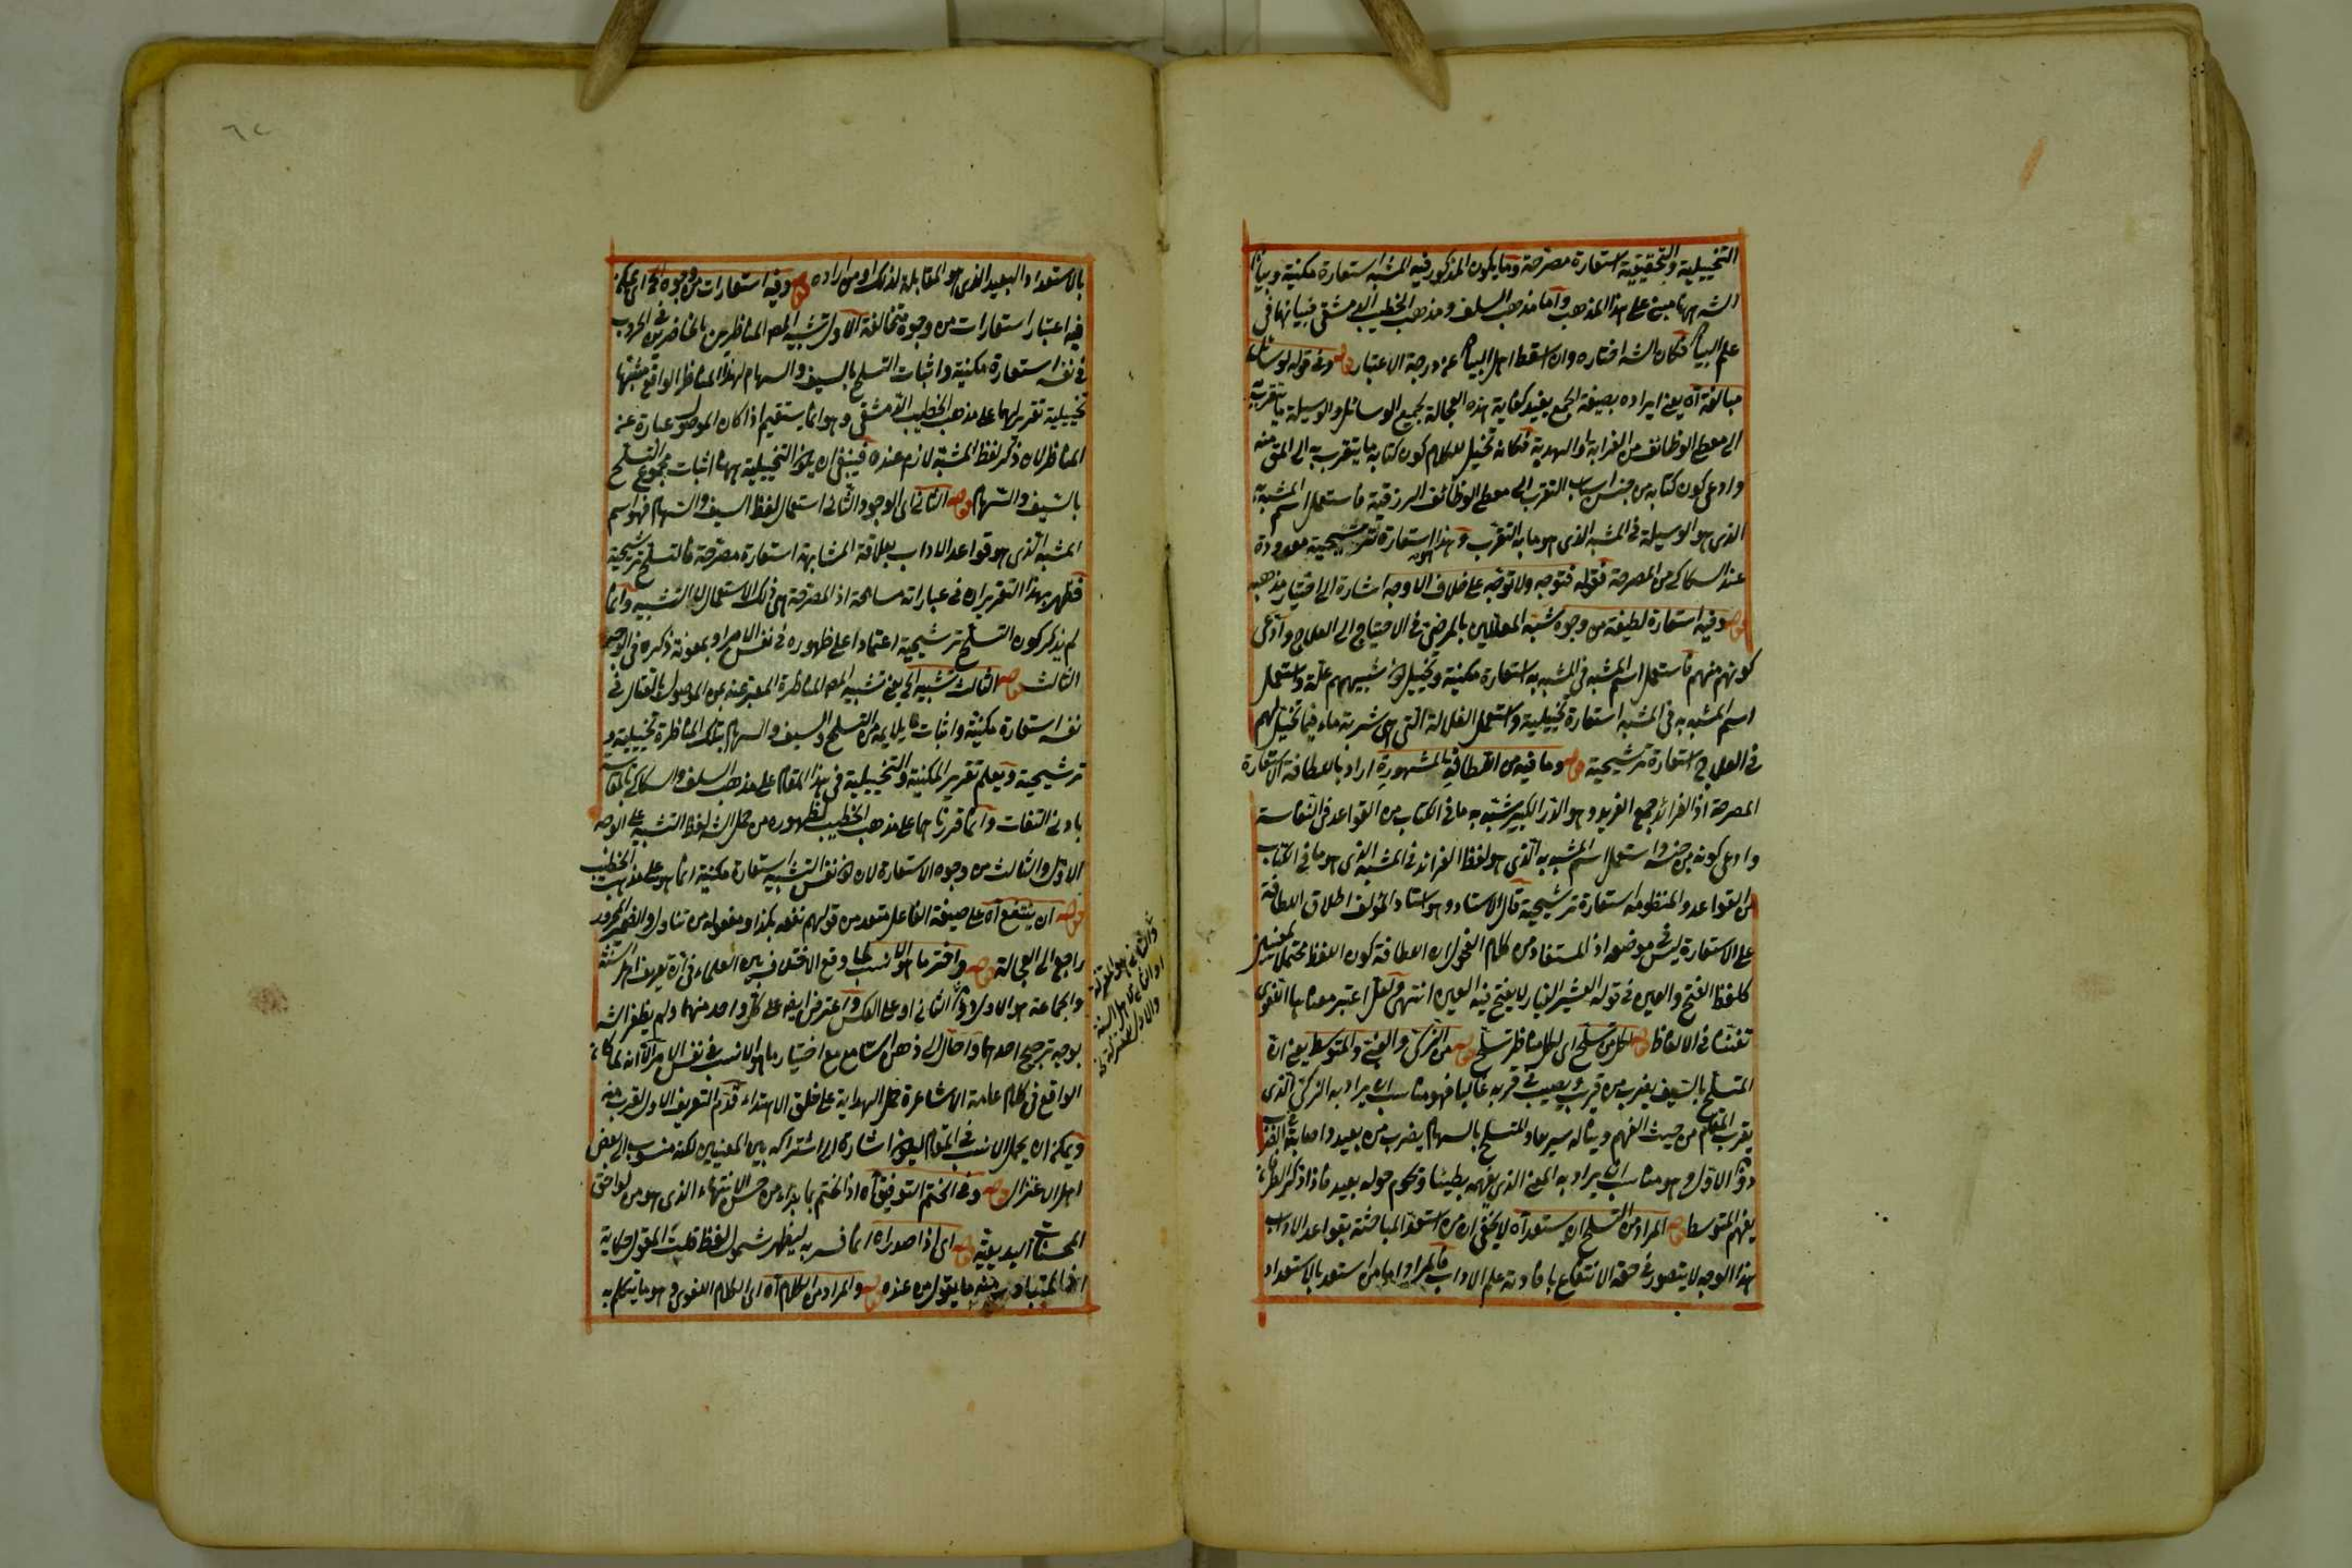 التخييلية والتحقيقية استعارة مصرحة وما يكون المذكور فيه المشبه استعارة مكنية وبيان
الشه ههنا مبنى على هذا المذهب واما مذهب السلف ومذهب الخطيب الدمشقى فبيانهما فى
علم البيان فكان الشه اختاره وان اسقط اهل البيان عن درجة الاعتبار قوله وفى قوله لوسائل
مبالغة آه يعنى ايراده بصيغة الجمع يفيد كفاية هذه العجالة لجميع الوسائل والوسيلة ما يتقرب به
الى معطى الوظائف من القرابة والهدية فكانه تخيل للكلام كون كتابه ما يتقرب به الى المق منه
وادعى كون كتابه من جنس اسباب التقرب الى معطى الوظائف الرزقية فاستعمل اسم المشبه به
الذى هو الوسيلة فى المشبه الذى هو ما به التقرب وهذا استعارة ترشيحية معدودة
عند السكاكى من المصرحة فقوله فتوجه ولا توجه على خلاف الاوجه اشارة الى اختيار مذهبه
قوله وفيه استعارة لطيفة من وجوه شبه المعللين بالمرضى فى الاحتياج الى العلاج وادعى
كونهم منهم فاستعمل اسم المشبه فى المشبه به استعارة مكنية وتخييل لان شبيههم علة واستعمل
اسم المشبه به فى المشبه استعارة تخييلية واستعمل الغلالة التى هى شربة ماء فيما تخيل لهم
فى العلاج استعارة ترشيحية قوله وما فيه من اللطافة المشهورة اراد باللطافة الاستعارة
المصرحة اذ الفرائد جمع الفريد وهو الدر الكبير شبه به ما فى الكتاب من القواعد فى النفاسة
وادعى كونه من جنسه واستعمل اسم المشبه به الذى هو لفظ الفرائد فى المشبه الذى هو ما فى الكتاب
من القواعد والمنظومة استعارة ترشيحية قال الاستاد وهو استاد المؤلف اطلاق اللطافة
على الاستعارة ليس فى موضعه اذ المستفاد من كلام الفحول ان اللطافة كون اللفظ محتملا لمعنيين
كلفظ الفتح والعين فى قوله العشير الغبار لا يفتح فيه العين انتهى ولعل اعتبر معناها اللغوى
تفننا فى الالفاظ قوله لكل من تسلح اى لكل مناظر تسلح قوله من الذكى والغبى والمتوسط يعنى ان
المتسلح بالسيف يضرب من قرب ويصيب فى قربه غالبا فهو مناسب ان يراد به الذكى الذى
يقرب المقام من حيث الفهم ويناله سريعا والمتسلح بالسهام يضرب من بعيد واصابة الغبى
دون الاول وهو مناسب ان يراد به المعنى الذى يفهمه بطيئا ويحوم حوله بعيد فاذا ذكر الطرفان
يفهم المتوسط قوله المراد من التسلح ان يستعد آه لا يخفى ان من استعد المباحثة بقواعد الاداب
هذا الوجه لا يتصور فى حقه الانتفاع بافادته علم الاداب فالمراد اما من استعد بالاستعداد
بالاستعداد البعيد الذى هو المقابلة لذلك او من اراده قوله وفيه استعارات من وجوه الخ اى يمكن
فيه اعتبار استعارات من وجوه متخالفة الاول تشبيه المص المناظرين بالحاضرين فى الحروب
فى نفسه استعارة مكنية واثبات التسلح بالسيف والسهام لهذا المناظر الواقع مشبها
تخييلية تقريرهما على مذهب الخطيب الدمشقى وهو انما يستقيم اذا كان الموصول عبارة عن
المناظر لان ذكر لفظ المشبه لازم عنده فينبغى ان يكون التخييلية ههنا اثبات مجموع التسلح
بالسيف والسهام قوله الثانى اى الوجود الثانى استعمال لفظ السيف والسهام فهو اسم
المشبه الذى هو قواعد الاداب بعلاقة المشابهة استعارة مصرحة فالتسلح ترشيحية
فظهر بهذا التقرير ان فى عباراته مسامحة اذ المصرحة هى ذلك الاستعمال لا التشبيه وانما
لم يذكر كون التسلح ترشيحية اعتمادا على ظهوره فى نفس الامر او بمعونة ذكره فى الوجه
الثالث قوله الثالث تشبيه الخ يعنى تشبيه المص المناظرة المعبر عنه بمن الموصول بالقتال فى
نفسه استعارة مكنية واثبات ما يلايمه من التسلح والسيف والسهام بتلك المناظرة تخييلية و
ترشيحية ويعلم تقرير المكنية والتخييلية فى هذا المقام على مذهب السلف والسكاكى بالمقايسة
بادنى التفات وانما قررناهما على مذهب الخطيب لظهوره من حمل الشه لفظ التشبيه على الوجه
الاول والثالث من وجوه الاستعارة لان كون نفس التشبيه استعارة مكنية انما هو على مذهب الخطيب
قوله ان ينتفع آه على صيغة الفاعل متعد من قولهم نفعه بكذا ومفعوله من تناول والضمير المجرور
راجع الى العجالة قوله واختر ما هو الانسب لما وقع الاختلاف بين العلماء فى ان تعريف اهل السنة
والجماعة هو الاول او الثانى او على العكس واعترض ايضا على كل واحد منهما ولم يظفر الشه
بوجه ترجيح احدهما واحال الى ذهن السامع مع اختيار ما هو الانسب فى نفس الامر الا انه لما كان
الواقع فى كلام عامة الاشاعرة حمل الهداية على خلق الاهتداء قدم التعريف الاول لقربه منه
ويمكن ان يجعل الانسب فى المقام ليكون اشارة الى اشتراكه بين المعنيين لكنه منسوب الى بعض
اهل الاعتزال قوله وفى الختم التوفيق آه اذ الختم بما يراد من حسن الانتهاء الذى هو من لواحق
المحسنات البديعية قوله اى اذا صدر آه انما فسر به ليظهر شمول لفظ قلت المقول حكاية
اذ المتبادر منه ما يقول من عنده قوله والمراد من الكلام آه اى الكلام اللغوى وهو ما يتكلم به